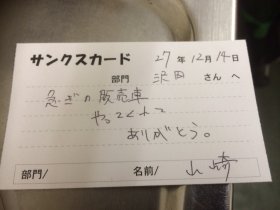 サンクスカード 27年12月14日
部門 沢田 さんへ
急ぎの販売車
やってくれて
ありがとう。
部門/ 名前/ 山崎